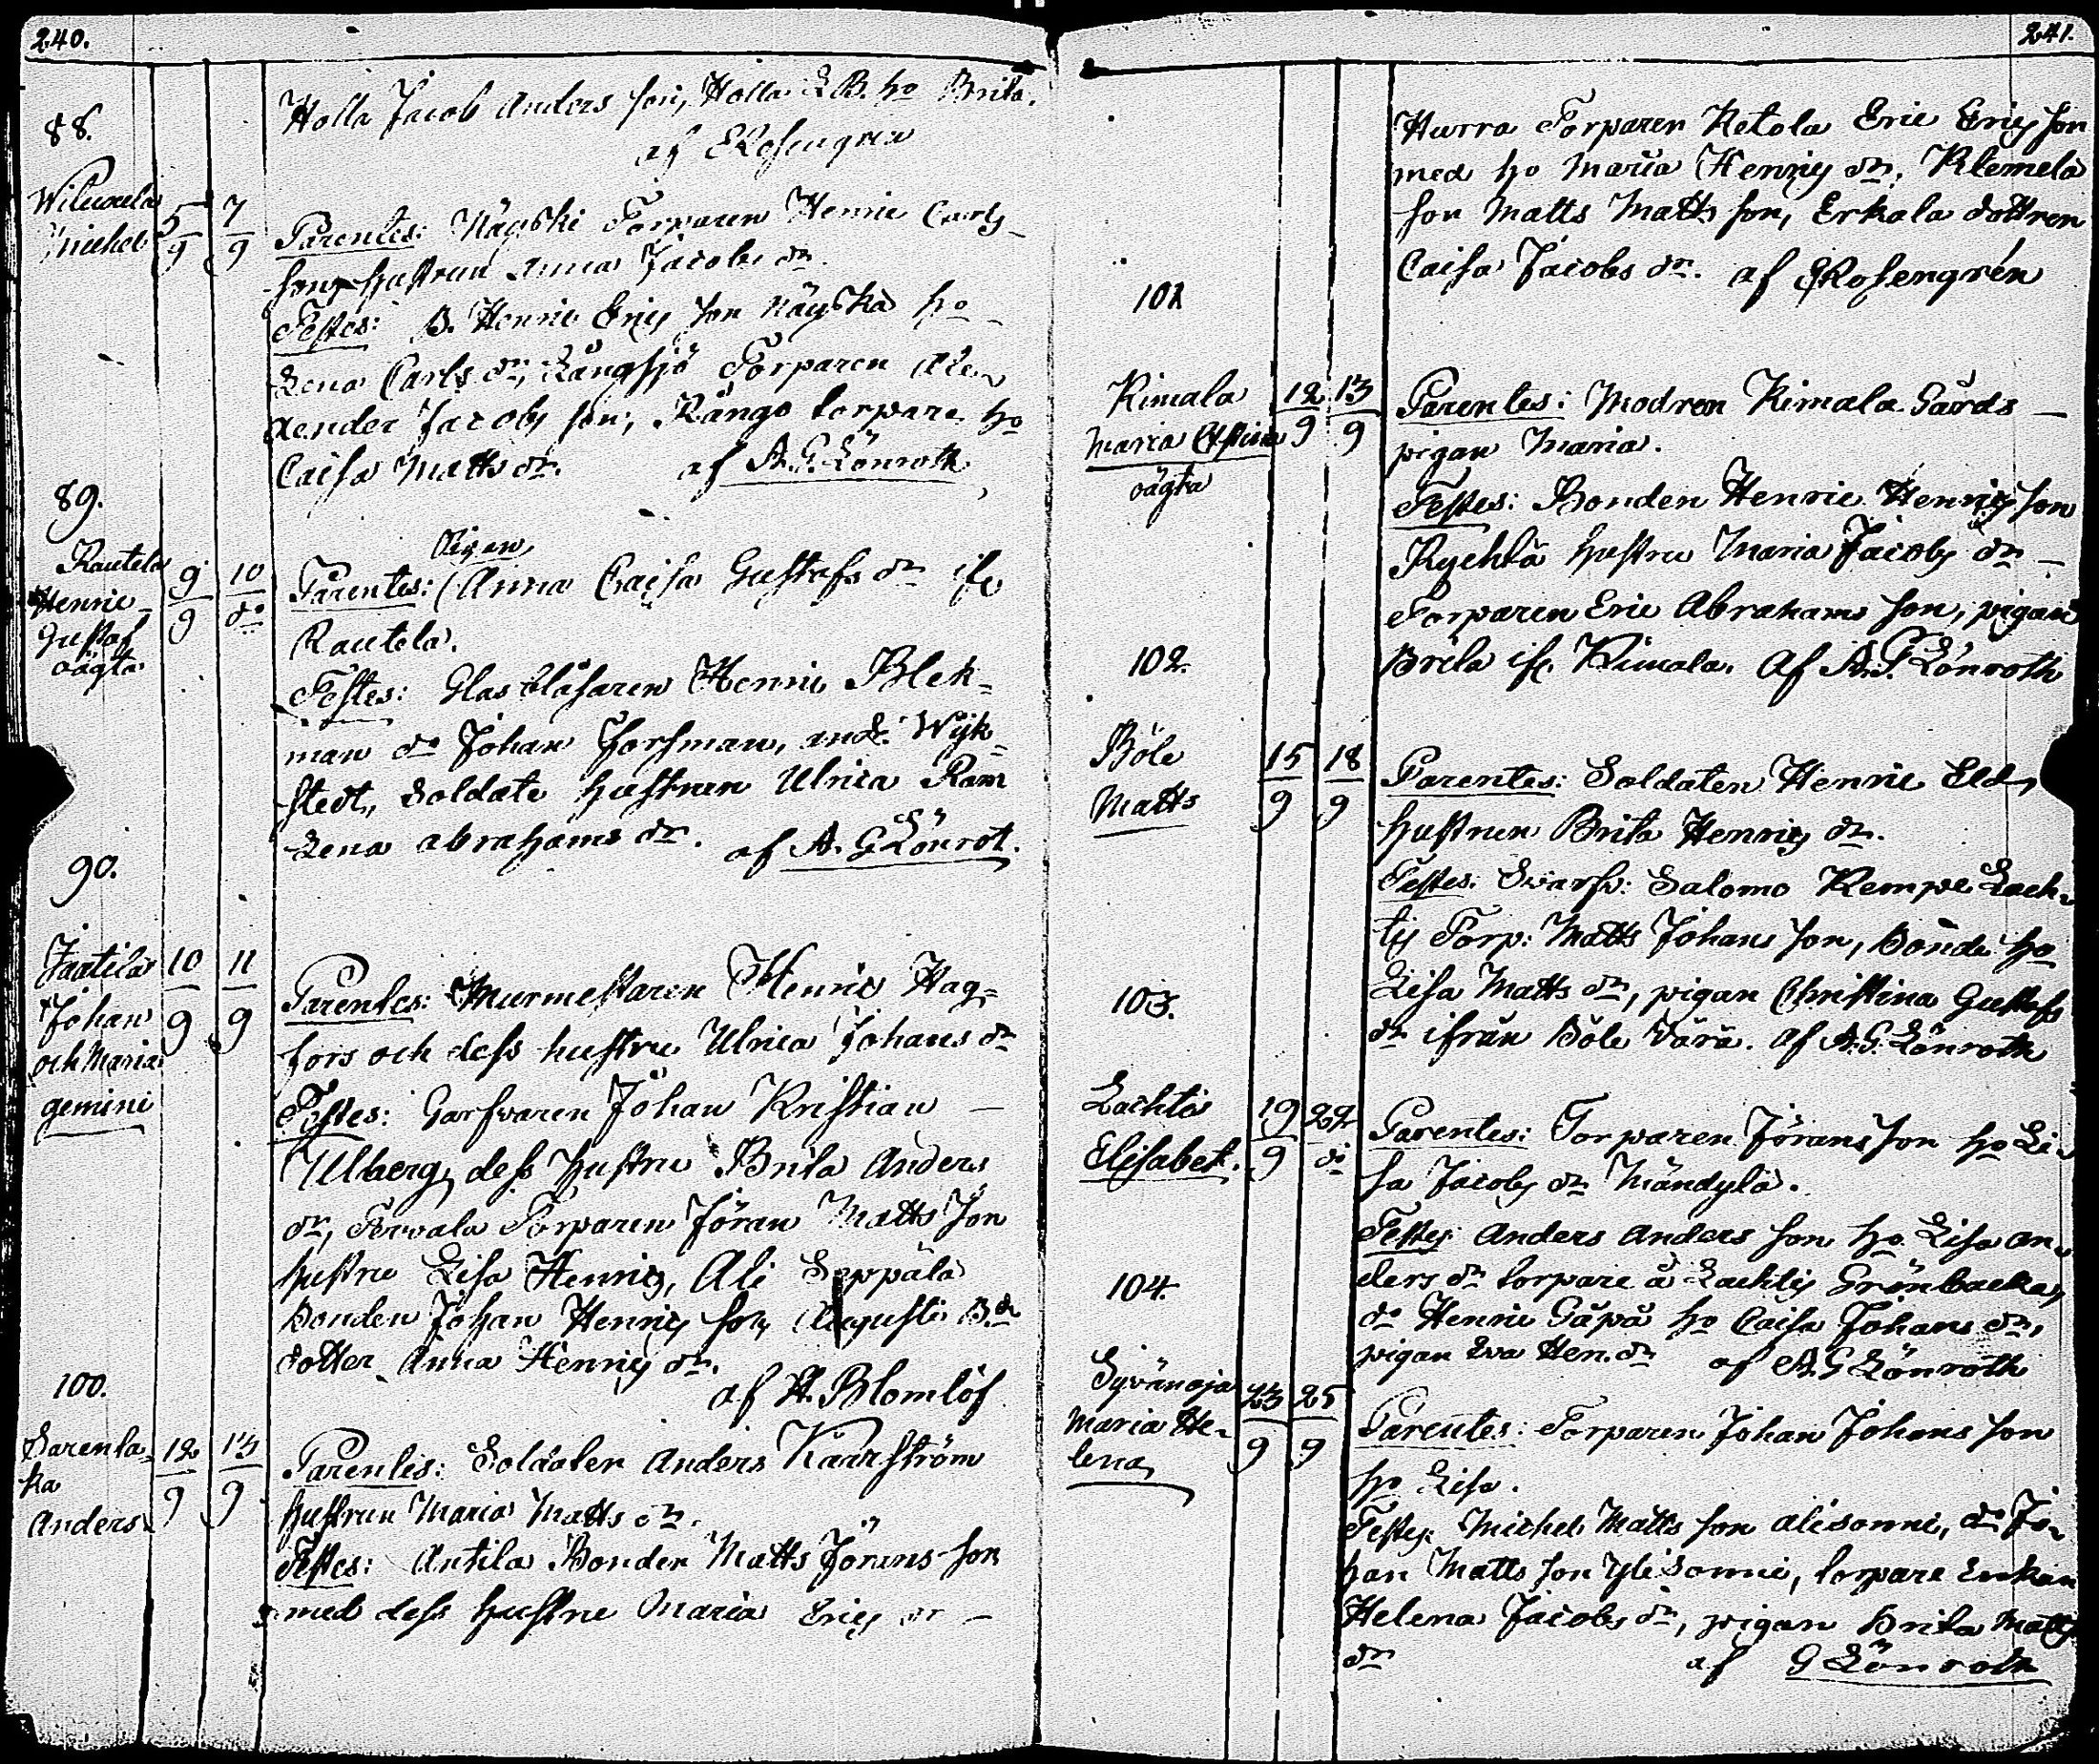 240.
Holla Jacob Anders son, Holla L B. ho Brita.
af E Rosengren
88.
Michel 5/9 7/9
Parentes: Näyski Torparen Henric Carls
son, hustrun Anna Jacobs dr.
Testes: B. Henric Erics son Näyskä ho
Lena Carls dr, Långsjö Torparen Alex
ander Jacobs son, Rångo torpare ho
Caisa Matts dr. af A. G. Lönroth
89.
Rautela
Henric
Gustaf
oägta
9/9 10/do
Pigan
Parentes: Anna Caisa Gustafs dr if.
Rautela.
Testes: Glasblåsaren Henric Blek=
man do Johan Forsman, and. Wijk=
stedt, Soldate hustrun Ulrica Ram
Lena abrahams dr. af A. G Lönrot.
90.
Jaatila
Johan
och Maria
gemini
10/9 11/9
Parentes: Murmestaren Henric Hag=
fors och dess hustru Ulrica Johans dr
Testes: Garfvaren Johan Kristian
Ulberg, dess hustru Brita Anders
dr, Torparen Jöran Matts son
hustru Lisa Henrics, Ali Seppälä
Bonden Johan Henrics son, Augusti B.
dotter Anna Henrics dr.
af H. Blomlöf
100.
Sarenka=
ka
Anders
12/9 13/9
Parentes: Soldaten Anders Kaarström
hustrun Maria Matts dr.
Testes: Antila Bonden Matts Jörans son
med dess hustru Maria Erics dr
241.
Hurra Torparen Ketola Eric Erics son
med ho Maria Henrics dr, Klemela
son Matts Matts son, Erkala dottren
Caisa Jacobs dr. af E Rosengrén
101
Kimala
Maria Christina
oägta
12/9 13/9
Parentes: Modren Kimala Gårds
pigan Maria.
Testes: Bonden Henric Henrics son
Rychtä hustru Maria Jacobs dr
Torparen Eric Abrahams son, pigan
Brita if. Kimala. Af A. G Lönroth
102.
Böle
Matts
15/9 18/9
Parentes: Soldaten Henric Eld,
hustrun Brita Henrics dr.
Testes: Svarfv: Salomo Kempe Lach=
tis Torp: Matts Johans son, Bonde ho
Lisa Matts dr, pigan Christina Gustafs
dr ifrån Böle Wörå. af A. G. Lönroth
103.
Lachtis
Elisabet.
19/9 22/do
Parentes: Torparen Jörans son ho Li=
sa Jacobs dr Mändylä.
Testes: Anders Anders son ho Lisa An=
ders dr torpare å Lachtis Grönbacka,
do Henric Gåpå ho Caisa Johans dr,
pigan Eva Hen. dr af A. G Lönroth
104.
Syvänoja
Maria He=
lena
23/9 25/9
Parentes: Torparen Johan Johans son
ho Lisa.
Testes: Michel Matts son alisonni, do Jo=
han Matts son Ylisonni, torpare Enkan
Helena Jacobs dr, pigan Brita Matts
dr af G Lönroth